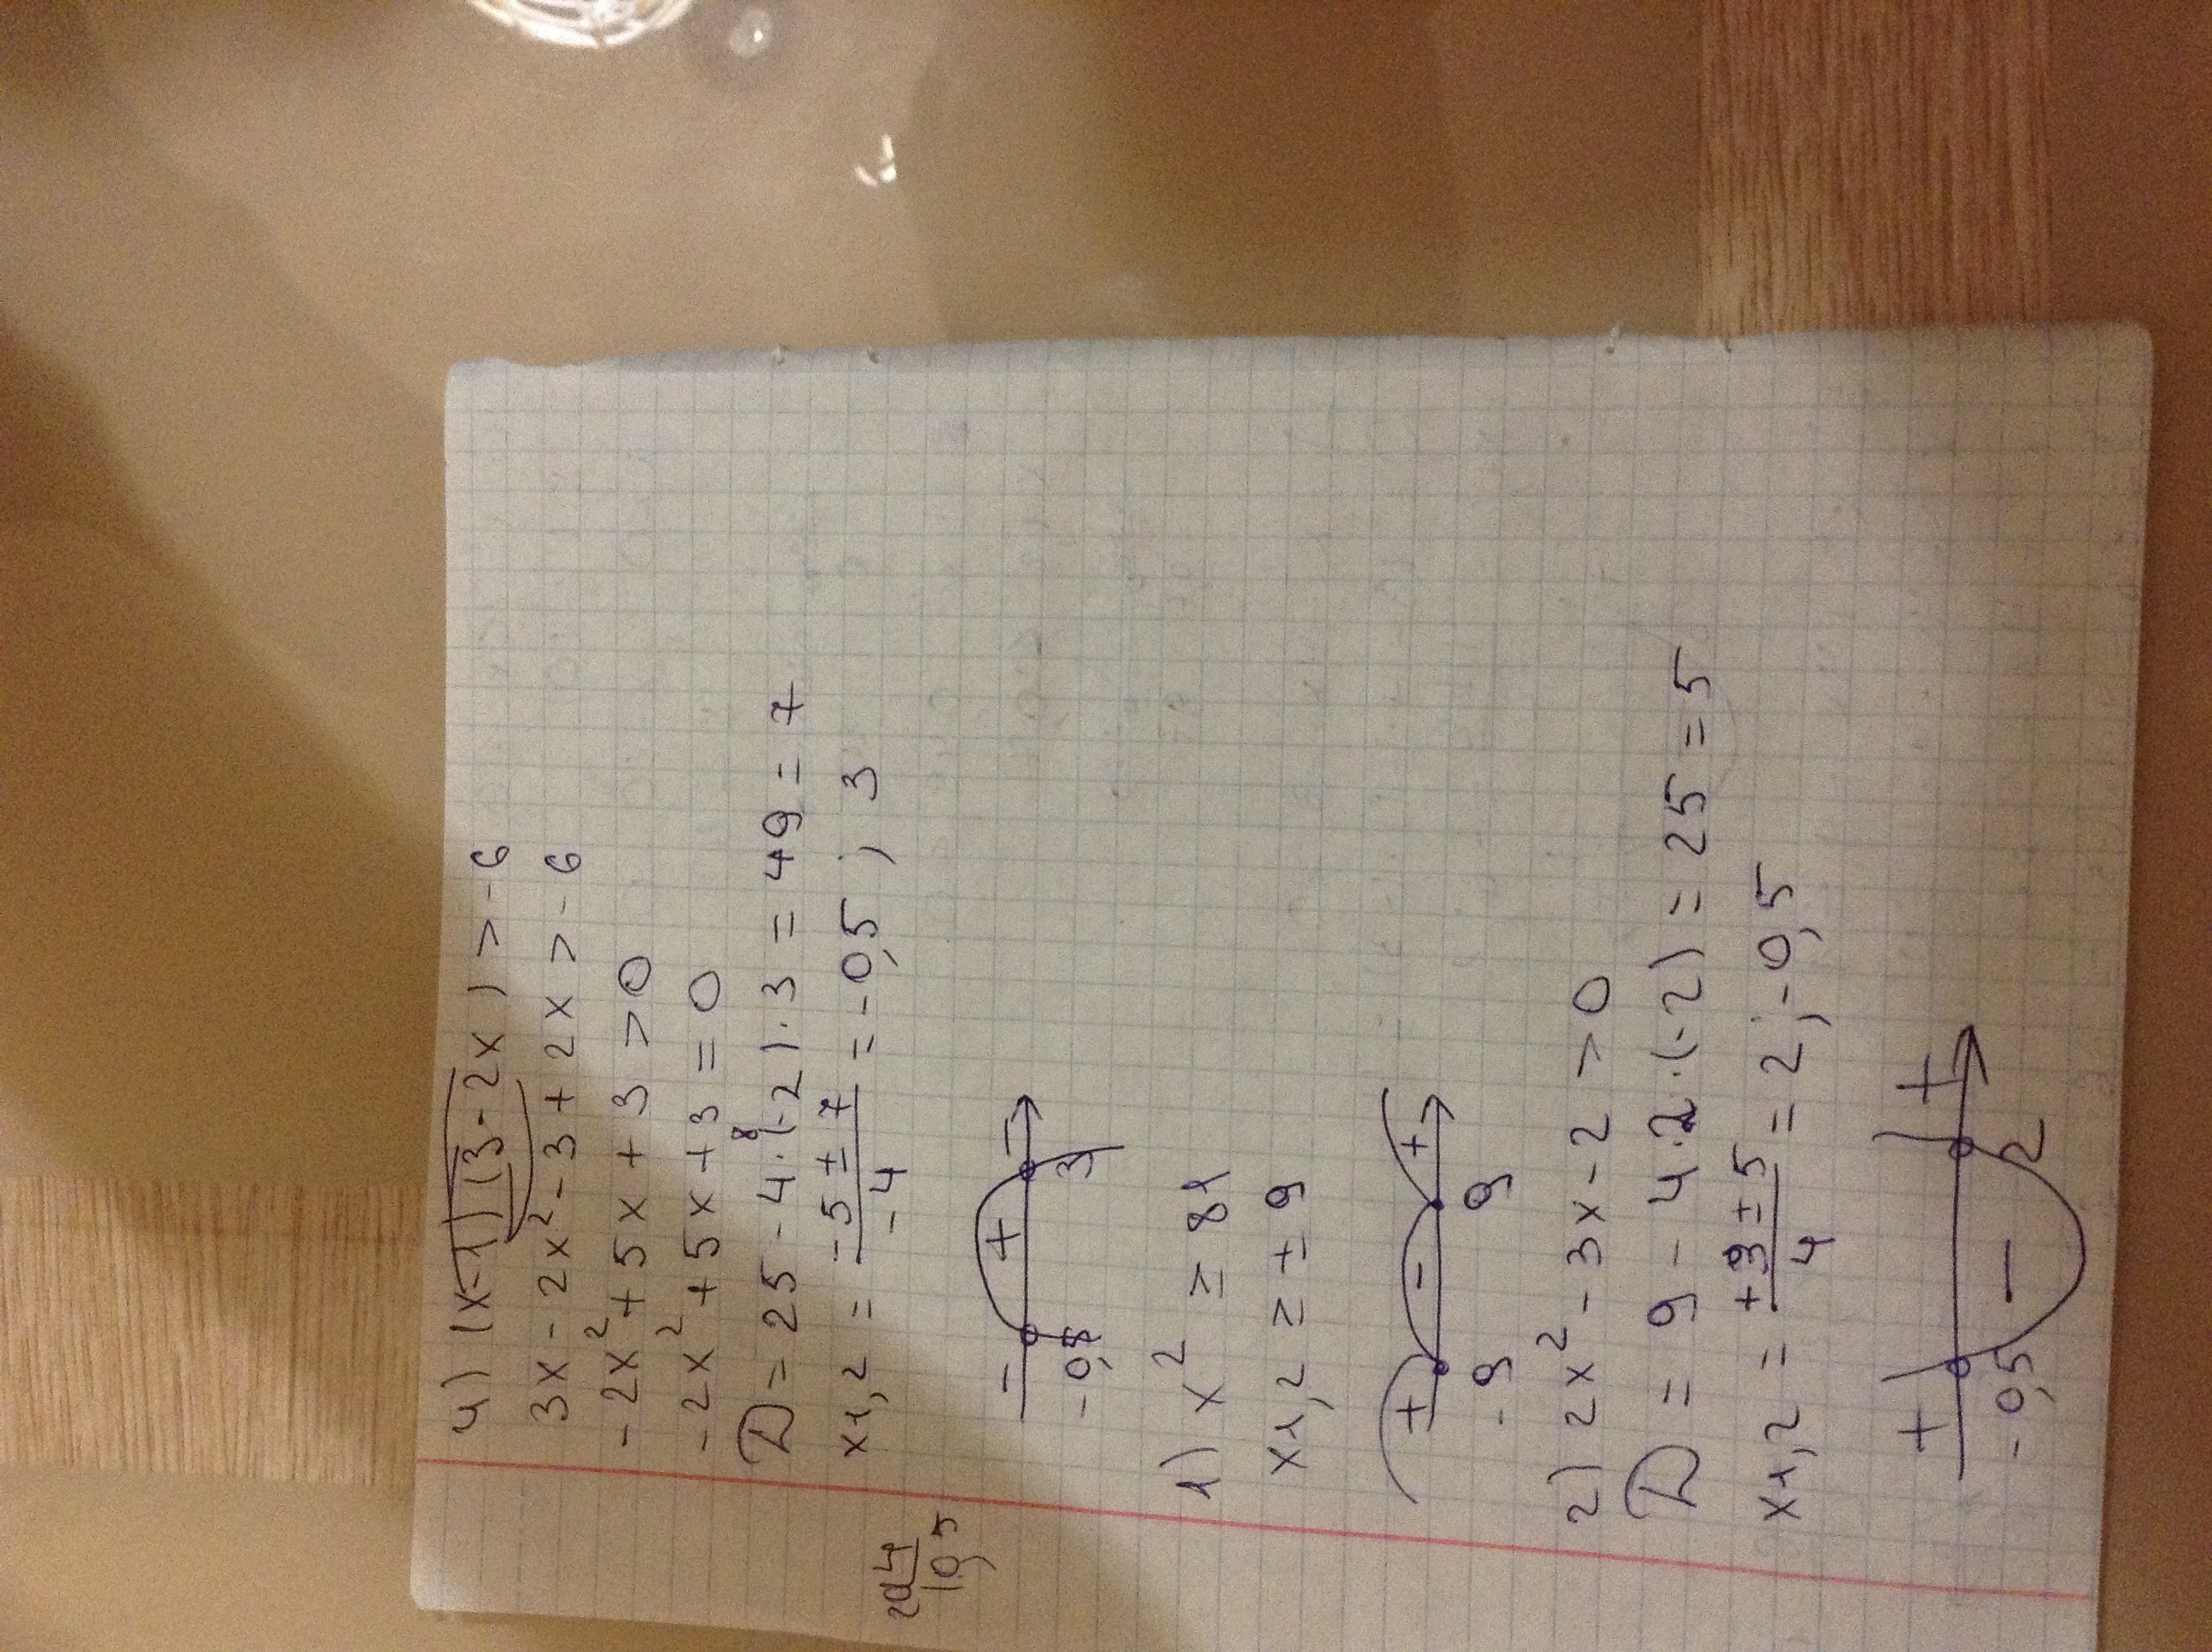 4) (x-1)(3-2x)>-6
3x-2x²-3+2x>-6
-2x²+5x+3>0
-2x²+5x+3=0
D=25-4·(-2)·3=49=7
8
x1,2=-5±7/-4=-0,5; 3
20 4
10,5
- + -
-0,5 3
1) x²≥81
x1,2≥±9
+ - +
-9 9
2) 2x²-3x-2>0
D=9-4·2·(-2)=25=5
x1,2=+3±5/4=2;-0,5
+ - +
-0,5 2